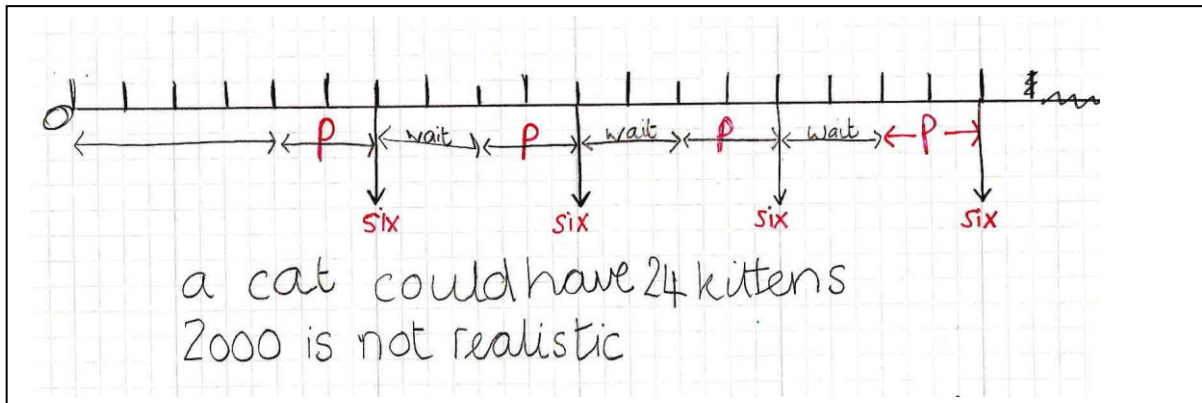 O
P wait P wait P wait P
six six six six
a cat could have 24 kittens
2000 is not realistic